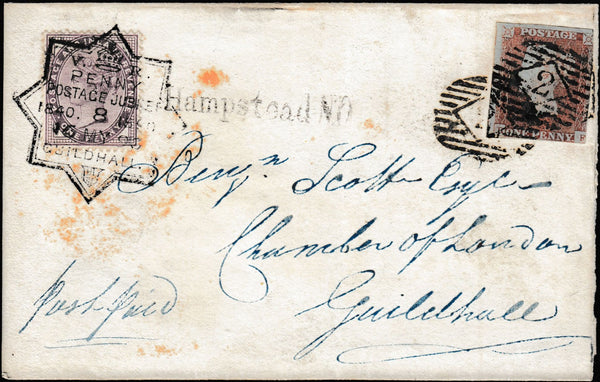 POSTAGE
ONE PENNY
2
V.R.
PENNY
POSTAGE JUBILEE
1840. 8
GUILDHALL
Hampstead NO
Benjn Scott Esqr
Chamber of London
Guildhall
Post Paid